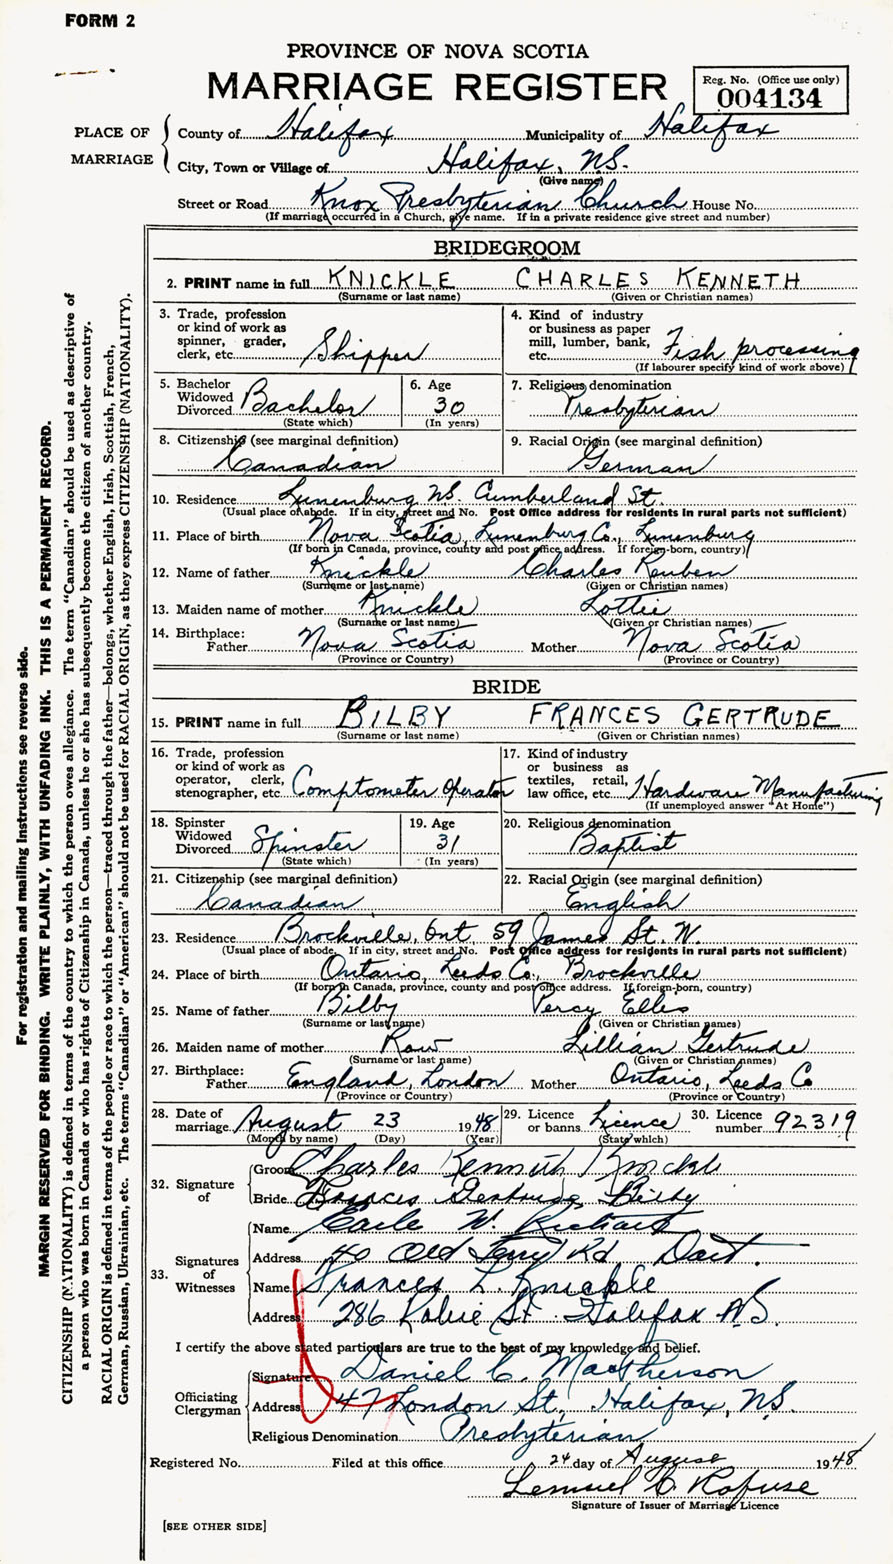 FORM 2
PROVINCE OF NOVA SCOTIA
MARRIAGE REGISTER
Reg. No. (Office use only)
004134
PLACE OF MARRIAGE
County of Halifax Municipality of Halifax
City, Town or Village of Halifax, N.S.
(Give name)
Street or Road Knox Presbyterian Church House No.
(If marriage occurred in a Church, give name. If in a private residence give street and number)
BRIDEGROOM
2. PRINT name in full KNICKLE CHARLES KENNETH
(Surname or last name) (Given or Christian names)
3. Trade, profession or kind of work as spinner, grader, clerk, etc. Shipper
4. Kind of industry or business as paper mill, lumber, bank, etc. Fish processing
(If labourer specify kind of work above)
5. Bachelor Widowed Divorced Bachelor
(State which)
6. Age 30
(In years)
7. Religious denomination Presbyterian
8. Citizenship (see marginal definition) Canadian
9. Racial Origin (see marginal definition) German
10. Residence Lunenburg N.S. Cumberland St.
(Usual place of abode. If in city, street and No. Post Office address for residents in rural parts not sufficient)
11. Place of birth Nova Scotia, Lunenburg Co., Lunenburg
(If born in Canada, province, county and post office address. If foreign-born, country)
12. Name of father Knickle Charles Reuben
(Surname or last name) (Given or Christian names)
13. Maiden name of mother Knickle Lottie
(Surname or last name) (Given or Christian names)
14. Birthplace: Father Nova Scotia Mother Nova Scotia
(Province or Country) (Province or Country)
BRIDE
15. PRINT name in full BILBY FRANCES GERTRUDE
(Surname or last name) (Given or Christian names)
16. Trade, profession or kind of work as operator, clerk, stenographer, etc. Comptometer Operator
17. Kind of industry or business as textiles, retail, law office, etc. Hardware Manufacturing
(If unemployed answer "At Home")
18. Spinster Widowed Divorced Spinster
(State which)
19. Age 31
(In years)
20. Religious denomination Baptist
21. Citizenship (see marginal definition) Canadian
22. Racial Origin (see marginal definition) English
23. Residence Brockville, Ont. 59 James St. W.
(Usual place of abode. If in city, street and No. Post Office address for residents in rural parts not sufficient)
24. Place of birth Ontario, Leeds Co., Brockville
(If born in Canada, province, county and post office address. If foreign-born, country)
25. Name of father Bilby Percy Ellis
(Surname or last name) (Given or Christian names)
26. Maiden name of mother Row Lillian Gertrude
(Surname or last name) (Given or Christian names)
27. Birthplace: Father England, London Mother Ontario, Leeds Co
(Province or Country) (Province or Country)
28. Date of marriage August 23 1948
(Month by name) (Day) (Year)
29. Licence or banns Licence
(State which)
30. Licence number 92319
32. Signature of
Groom Charles Kenneth Knickle
Bride Frances Gertrude Bilby
33. Signatures of Witnesses
Name Earle W.
Address 40 Old Ferry Rd Dart.
Name Frances L. Knickle
Address 286 St. Halifax N.S.
I certify the above stated particulars are true to the best of my knowledge and belief.
Officiating Clergyman
Signature Daniel C. MacPherson
Address 47 London St., Halifax, N.S.
Religious Denomination Presbyterian
Registered No. Filed at this office 24 day of August 1948
Lemuel C. Rafuse
Signature of Issuer of Marriage Licence
[SEE OTHER SIDE]
For registration and mailing instructions see reverse side.
MARGIN RESERVED FOR BINDING. WRITE PLAINLY, WITH UNFADING INK. THIS IS A PERMANENT RECORD.
CITIZENSHIP (NATIONALITY) is defined in terms of the country to which the person owes allegiance. The term "Canadian" should be used as descriptive of
a person who was born in Canada or who has rights of Citizenship in Canada, unless he or she has subsequently become the citizen of another country.
RACIAL ORIGIN is defined in terms of the people or race to which the person—traced through the father—belongs, whether English, Irish, Scottish, French,
German, Russian, Ukrainian, etc. The terms "Canadian" or "American" should not be used for RACIAL ORIGIN, as they express CITIZENSHIP (NATIONALITY).